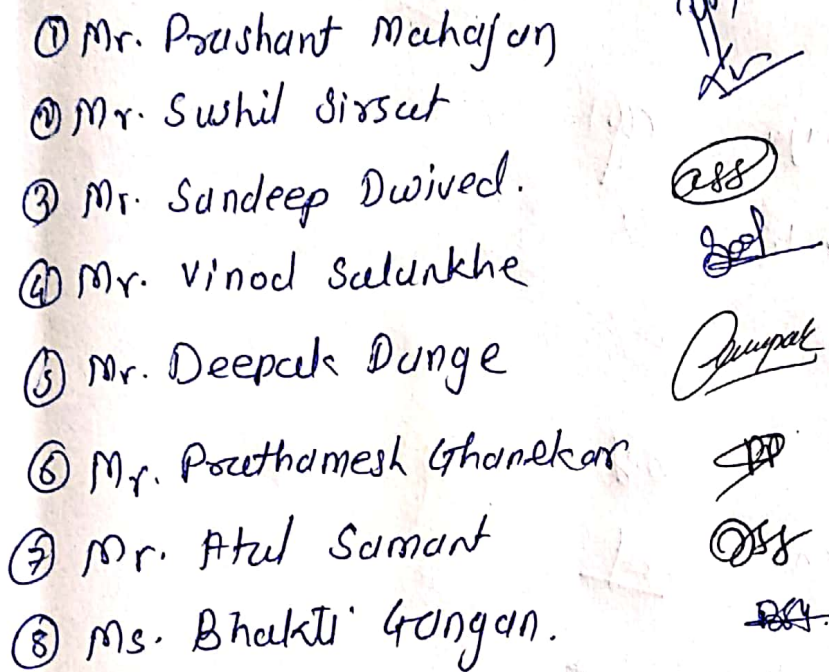 ① Mr. Prashant Mahajan
② Mr. Sushil Sirsat
③ Mr. Sandeep Dwived.
④ Mr. Vinod Salunkhe
⑤ Mr. Deepak Dange
⑥ Mr. Prathamesh Ghanekar
⑦ Mr. Atul Samant
⑧ Ms. Bhakti Gangan.